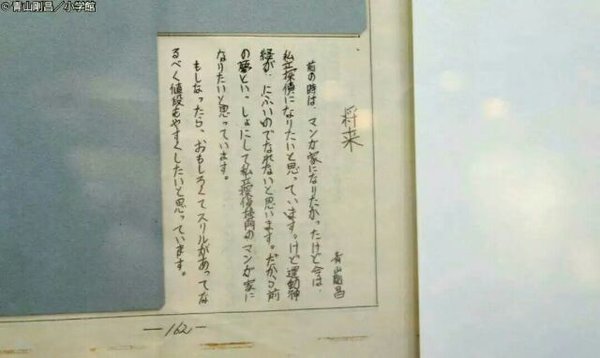 ©青山剛昌／小学館
将来
青山剛昌
前の時は、マンガ家になりたかったけど今は、
私立探偵になりたいと思っています。けど運動神
経が、にぶいのでなれないと思います。だから前
の夢といっしょにして私立探偵専門のマンガ家に
なりたいと思っています。
もしなったら、おもしろくてスリルがあってな
るべく値段もやすくしたいと思っています。
—162—